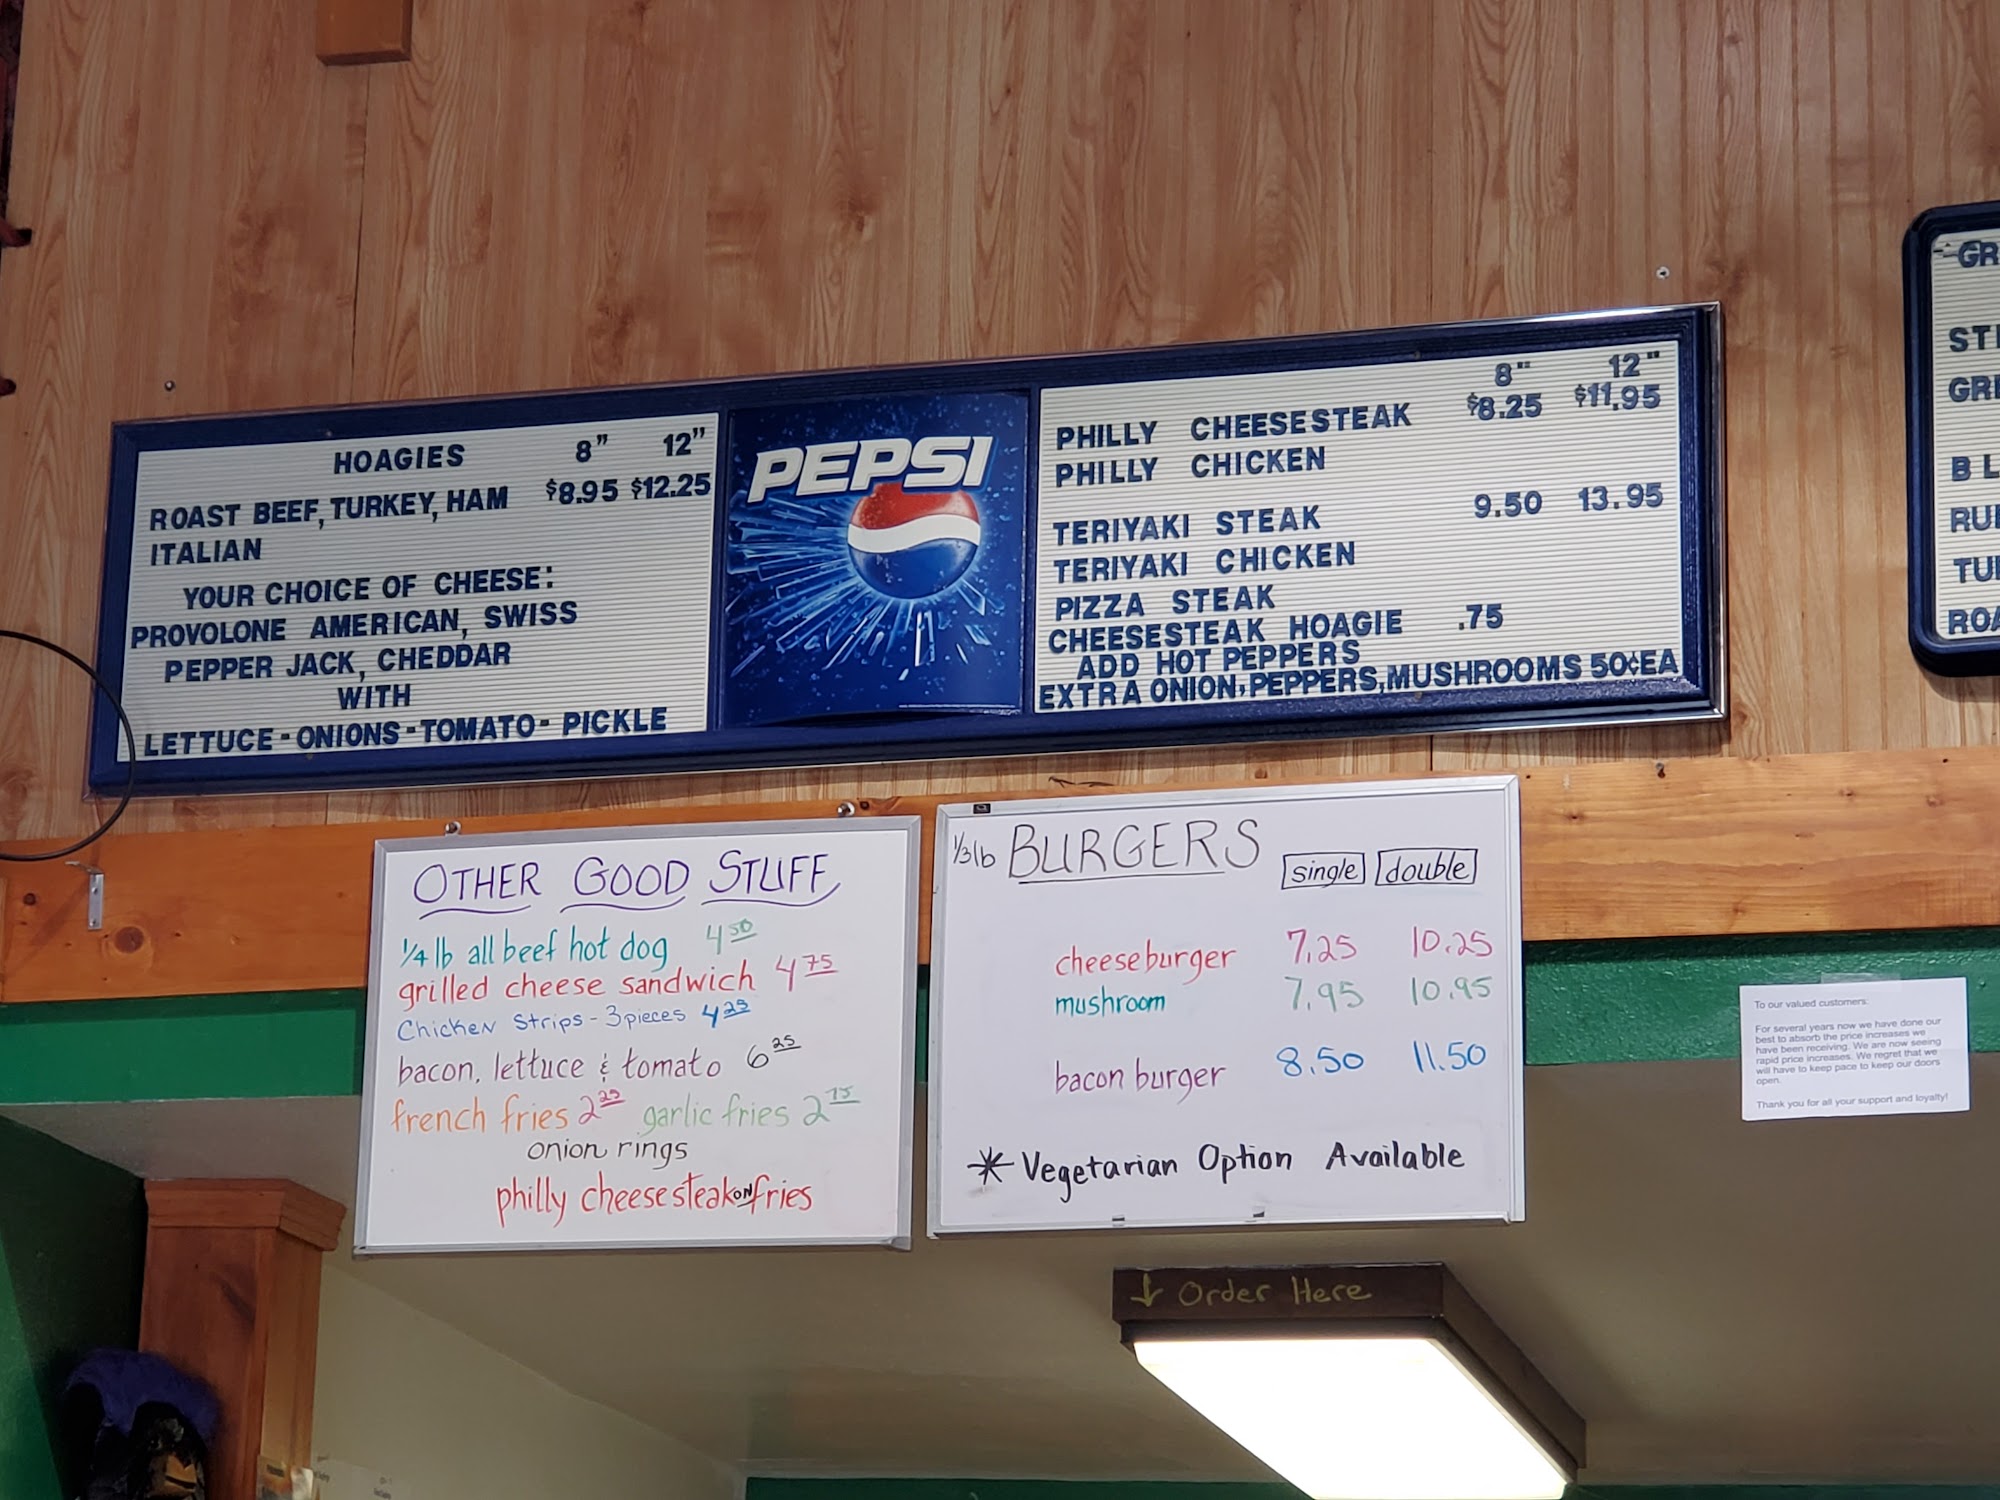 HOAGIES 8" 12"
ROAST BEEF, TURKEY, HAM $8.95 $12.25
ITALIAN
YOUR CHOICE OF CHEESE:
PROVOLONE AMERICAN, SWISS
PEPPER JACK, CHEDDAR
WITH
LETTUCE - ONIONS - TOMATO - PICKLE
PEPSI
8" 12"
PHILLY CHEESESTEAK $8.25 $11.95
PHILLY CHICKEN
TERIYAKI STEAK 9.50 13.95
TERIYAKI CHICKEN
PIZZA STEAK
CHEESESTEAK HOAGIE .75
ADD HOT PEPPERS
EXTRA ONION, PEPPERS, MUSHROOMS 50¢EA
GR
STE
GRI
BL
RU
TU
ROA
OTHER GOOD STUFF
1/4 lb all beef hot dog 4 50
grilled cheese sandwich 4 75
Chicken Strips - 3 pieces 4 25
bacon, lettuce & tomato 6 25
french fries 2 25 garlic fries 2 75
onion rings
philly cheesesteak ON fries
1/3 lb BURGERS single double
cheeseburger 7.25 10.25
mushroom 7.95 10.95
bacon burger 8.50 11.50
* Vegetarian Option Available
To our valued customers:
For several years now we have done our
best to absorb the price increases we
have been receiving. We are now seeing
rapid price increases. We regret that we
will have to keep pace to keep our doors
open.
Thank you for all your support and loyalty!
↓ Order Here